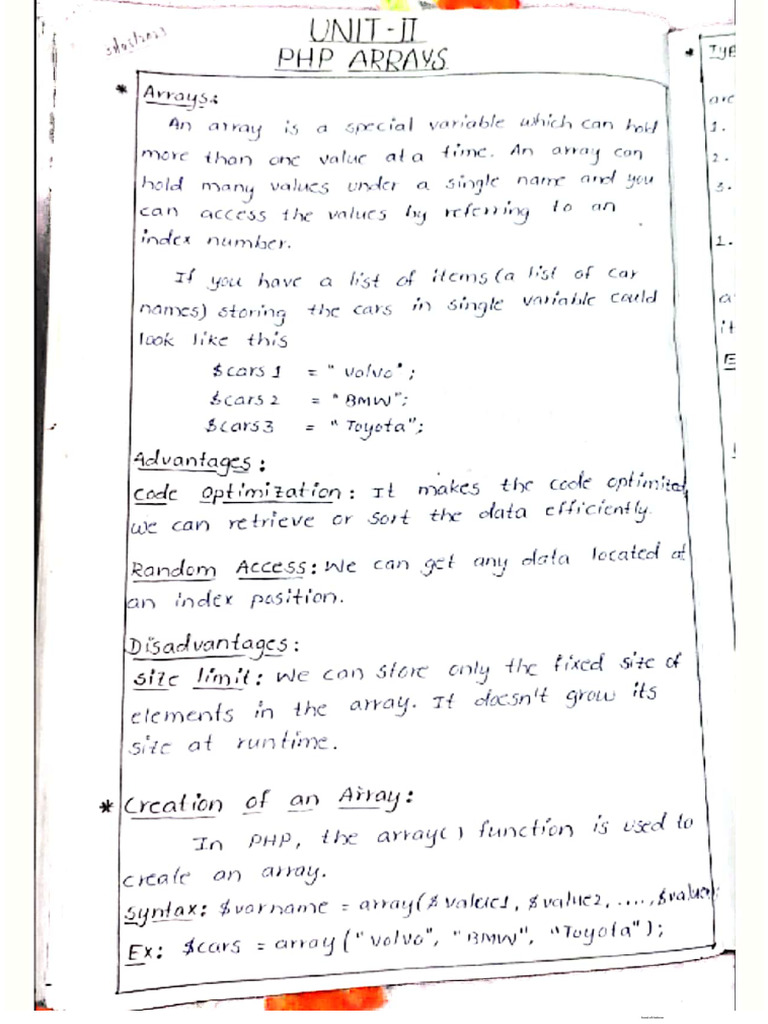 UNIT-II
PHP ARRAYS
* Arrays:
An array is a special variable which can hold
more than one value at a time. An array can
hold many values under a single name and you
can access the values by referring to an
index number.
If you have a list of items (a list of car
names) storing the cars in single variable could
look like this
$cars1 = "Volvo";
$cars2 = "BMW";
$cars3 = "Toyota";
Advantages:
Code Optimization: It makes the code optimized,
we can retrieve or sort the data efficiently.
Random Access: We can get any data located at
an index position.
Disadvantages:
Size limit: We can store only the fixed size of
elements in the array. It doesn't grow its
size at runtime.
* Creation of an Array:
In PHP, the array() function is used to
create an array.
Syntax: $varname = array($value1, $value2, ...., $value);
Ex: $cars = array("Volvo", "BMW", "Toyota");
* TYP
are
1.
2.
3.
1.
a
it
E